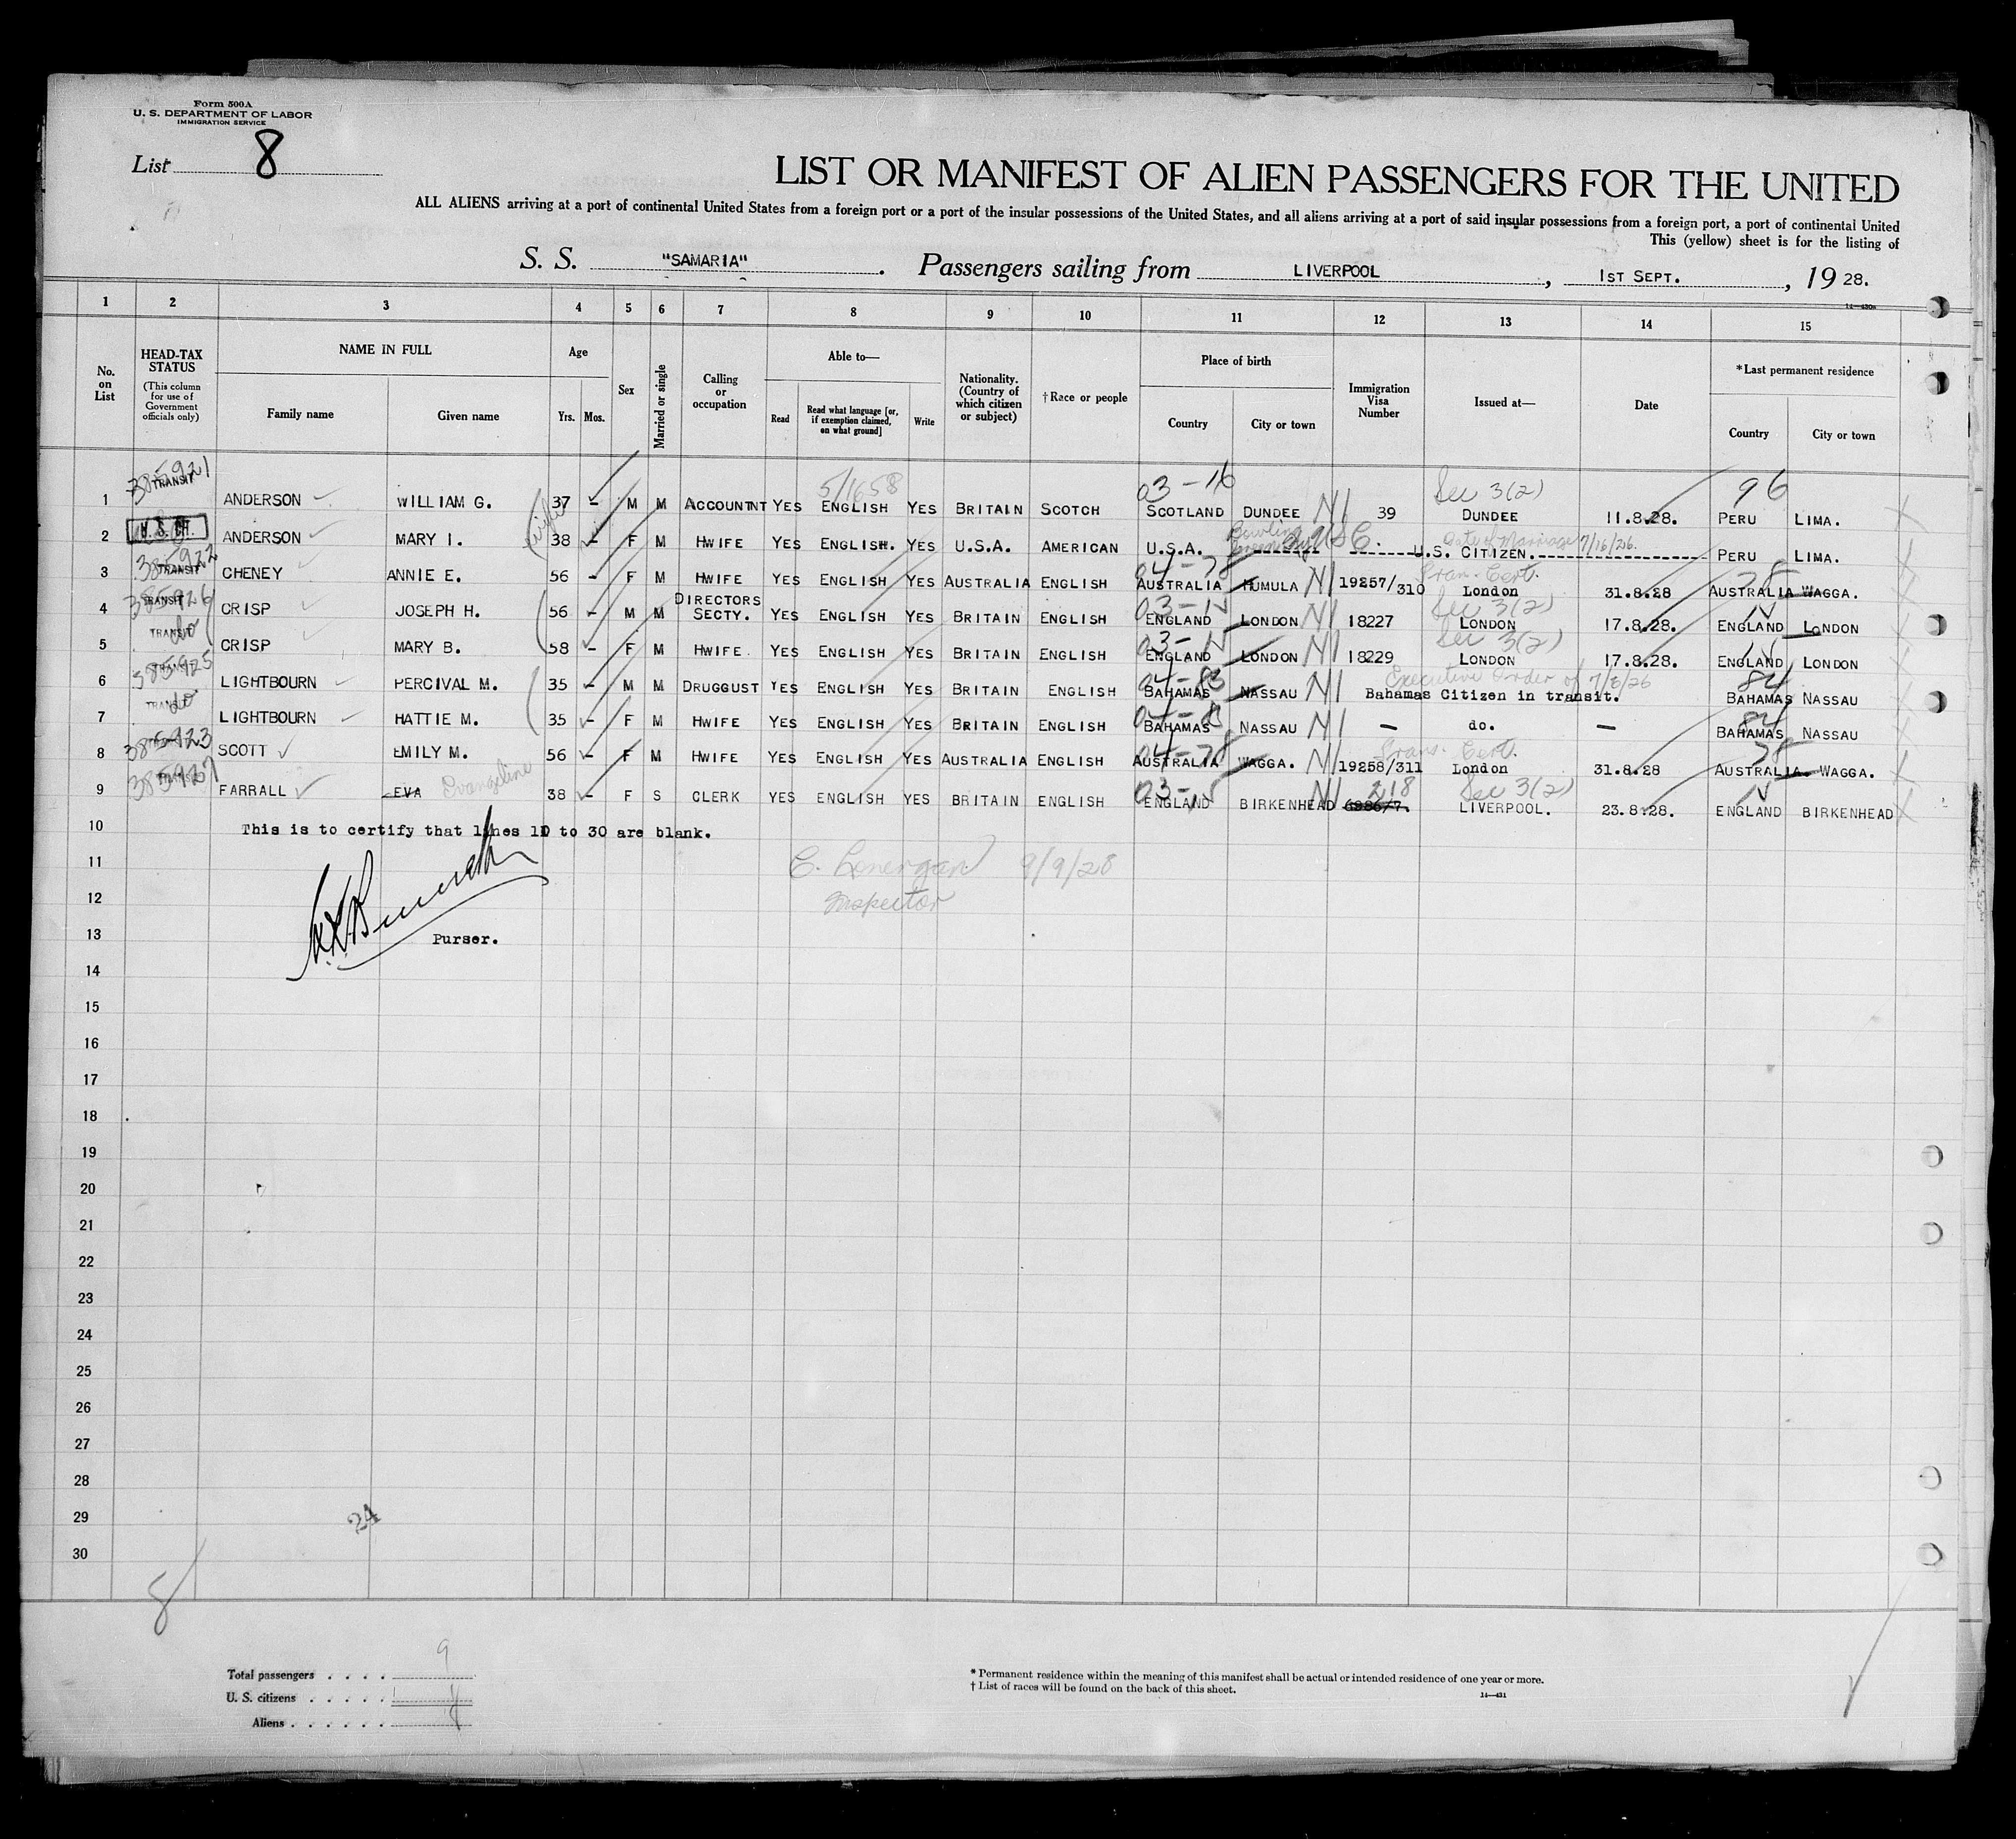 Form 500A
U. S. DEPARTMENT OF LABOR
IMMIGRATION SERVICE
List 8
LIST OR MANIFEST OF ALIEN PASSENGERS FOR THE UNITED
ALL ALIENS arriving at a port of continental United States from a foreign port or a port of the insular possessions of the United States, and all aliens arriving at a port of said insular possessions from a foreign port, a port of continental United
This (yellow) sheet is for the listing of
S. S. "SAMARIA". Passengers sailing from LIVERPOOL, 1ST SEPT., 19 28.
1 2 3 4 5 6 7 8 9 10 11 12 13 14 15
No. on List
HEAD-TAX STATUS
(This column for use of Government officials only)
NAME IN FULL
Family name
Given name
Age
Yrs. Mos.
Sex
Married or single
Calling or occupation
Able to—
Read
Read what language [or, if exemption claimed, on what ground]
Write
Nationality. (Country of which citizen or subject)
†Race or people
Place of birth
Country
City or town
Immigration Visa Number
Issued at—
Date
*Last permanent residence
Country
City or town
385921 5/1658 03-16 Sec 3(2) 96
1 TRANSIT ANDERSON WILLIAM G. 37 - M M ACCOUNTNT YES ENGLISH YES BRITAIN SCOTCH SCOTLAND DUNDEE 39 DUNDEE 11.8.28. PERU LIMA.
Bowling Green USC. Date of Marriage 7/16/26.
2 ANDERSON MARY I. 38 - F M HWIFE YES ENGLISH. YES U.S.A. AMERICAN U.S.A. U.S. CITIZEN. PERU LIMA.
385922 Tran. Cert.
3 TRANSIT CHENEY ANNIE E. 56 - F M HWIFE YES ENGLISH YES AUSTRALIA ENGLISH AUSTRALIA HUMULA 19257/310 London 31.8.28 AUSTRALIA WAGGA.
385926 Sec 3(2)
4 TRANSIT CRISP JOSEPH H. 56 - M M DIRECTORS SECTY. YES ENGLISH YES BRITAIN ENGLISH ENGLAND LONDON 18227 LONDON 17.8.28. ENGLAND LONDON
do Sec 3(2)
5 TRANSIT CRISP MARY B. 58 - F M HWIFE YES ENGLISH YES BRITAIN ENGLISH ENGLAND LONDON 18229 LONDON 17.8.28. ENGLAND LONDON
385925 04-83 Executive Order of 7/8/26 84
6 LIGHTBOURN PERCIVAL M. 35 - M M DRUGGUST YES ENGLISH YES BRITAIN ENGLISH BAHAMAS NASSAU Bahamas Citizen in transit. BAHAMAS NASSAU
do 84
7 LIGHTBOURN HATTIE M. 35 - F M HWIFE YES ENGLISH YES BRITAIN ENGLISH BAHAMAS NASSAU - do. - BAHAMAS NASSAU
385923 04-78 Trans. Cert. 78
8 SCOTT EMILY M. 56 - F M HWIFE YES ENGLISH YES AUSTRALIA ENGLISH AUSTRALIA WAGGA. 19258/311 London 31.8.28 AUSTRALIA. WAGGA.
385927 Evangeline 218 Sec 3(2)
9 FARRALL EVA 38 - F S CLERK YES ENGLISH YES BRITAIN ENGLISH ENGLAND BIRKENHEAD LIVERPOOL. 23.8.28. ENGLAND BIRKENHEAD
10 This is to certify that lines 10 to 30 are blank.
11 E. Lonergan 9/9/28
12 Inspector
13 Purser.
14
15
16
17
18
19
20
21
22
23
24
25
26
27
28
29
24
30
8
Total passengers . . . . 9
U. S. citizens . . . . . 1
Aliens . . . . . . 8
* Permanent residence within the meaning of this manifest shall be actual or intended residence of one year or more.
† List of races will be found on the back of this sheet.
14—431